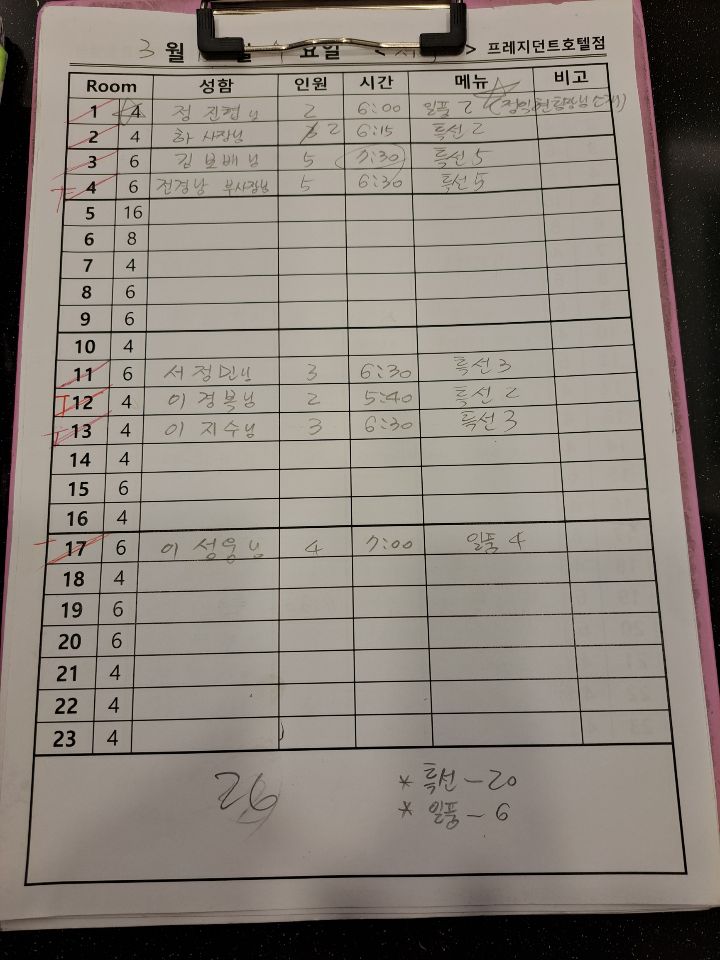 3 월 요일 < > 프레지던트호텔점
Room 성함 인원 시간 메뉴 비고
1 4 정진협님 2 6:00 일품 2
2 4 하 사장님 2 6:15 특선 2
3 6 김보배님 5 7:30 특선 5
4 6 전경남 부사장님 5 6:30 특선 5
5 16
6 8
7 4
8 6
9 6
10 4
11 6 서정민님 3 6:30 특선 3
12 4 이경복님 2 5:40 특선 2
13 4 이지수님 3 6:30 특선 3
14 4
15 6
16 4
17 6 이성웅님 4 7:00 일품 4
18 4
19 6
20 6
21 4
22 4
23 4
26
* 특선 - 20
* 일품 - 6